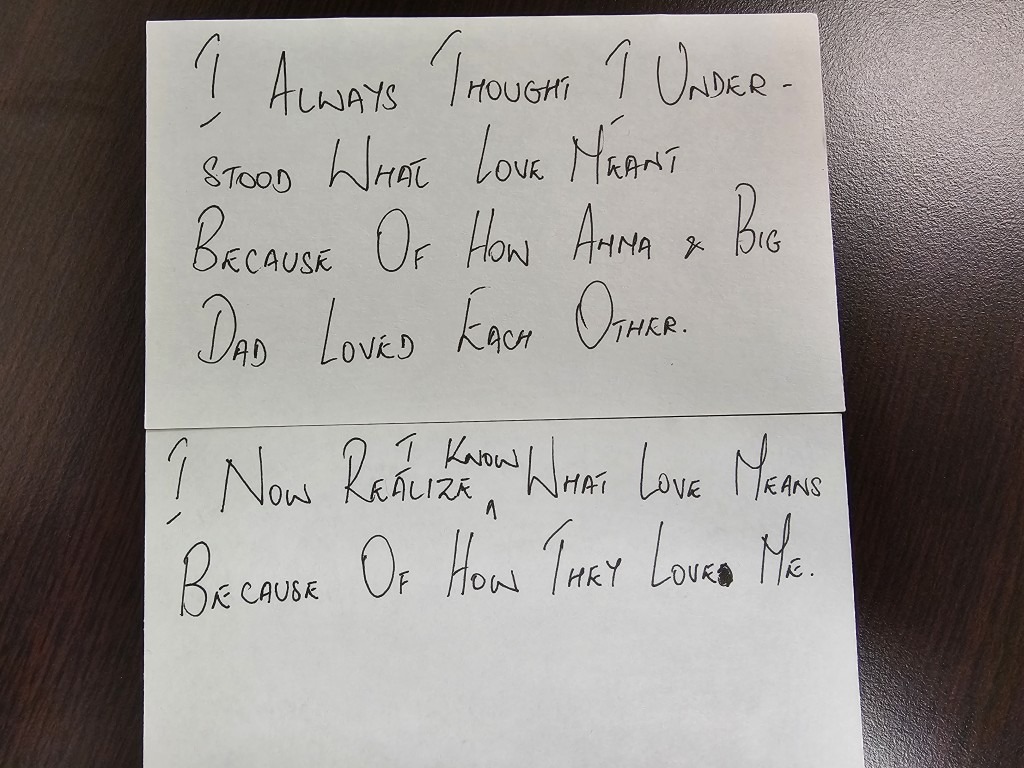 I ALWAYS THOUGHT I UNDER-
STOOD WHAT LOVE MEANT
BECAUSE OF HOW AMMA & BIG
DAD LOVED EACH OTHER.
I NOW REALIZE I KNOW WHAT LOVE MEANS
BECAUSE OF HOW THEY LOVE ME.